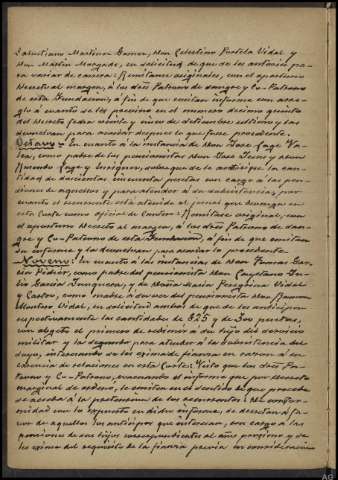 Salustiano Martínez Gómez, Don Celestino Portela Vidal y
Don Martín Morgade, en solicitud de que se les autorice pa-
ra variar de carrera: Remítanse originales, con el oportuno
decreto al margen, á los dos Patronos de sangre y Co-Patrono
de esta Fundación, á fin de que emitan informe con arre-
glo á cuanto se les previno en el número décimo quinto
del decreto fecha veinte y cinco de septiembre último y las
devuelvan para acordar después lo que fuese procedente.
Octavo: En cuanto á la instancia de Don José Lage Va-
, como padre de los pensionistas Don José Jesús y Don
Ricardo Lage y , sobre que se le anticipe la can-
tidad de doscientas cincuenta pesetas con cargo á las pen-
siones de aquellos y para atender á su subsistencia, por
cuanto el recurrente está atenido al jornal que devenga en
esta Corte como oficial de cantero: Remítase original, con
el oportuno decreto al margen, á los dos Patronos de san-
gre y Co-Patrono de esta Fundación, á fin de que emitan
su informe y la devuelvan para acordar lo procedente.
Noveno: En cuanto á las instancias de Don Tomás Gar-
cía , como padre del pensionista Don Cayetano Ju-
lio García Junquera, y de Doña María Peregrina Vidal
y Castro, como madre á su vez del pensionista Don Ramón
Montero Vidal, en solicitud ambos de que se les anticipen
respectivamente las cantidades de 825 y de 300 pesetas,
con objeto el primero de redimir á su hijo del servicio
militar y la segunda para atender á la subsistencia del
suyo, interesando se les exima de fianza en razón á ca-
rencia de relaciones en esta Corte: Visto que los dos Pa-
tronos y Co-Patrono, evacuando el informe que por decreto
marginal se ordenó, lo emiten en el sentido de que procede
se acceda á la pretensión de los recurrentes: De confor-
midad con lo expuesto en dicho informe, se decretan á fa-
vor de aquellos los anticipos que interesan, con cargo á las
pensiones de sus hijos correspondientes al año próximo y se
les exime del requisito de la fianza previa en consideración